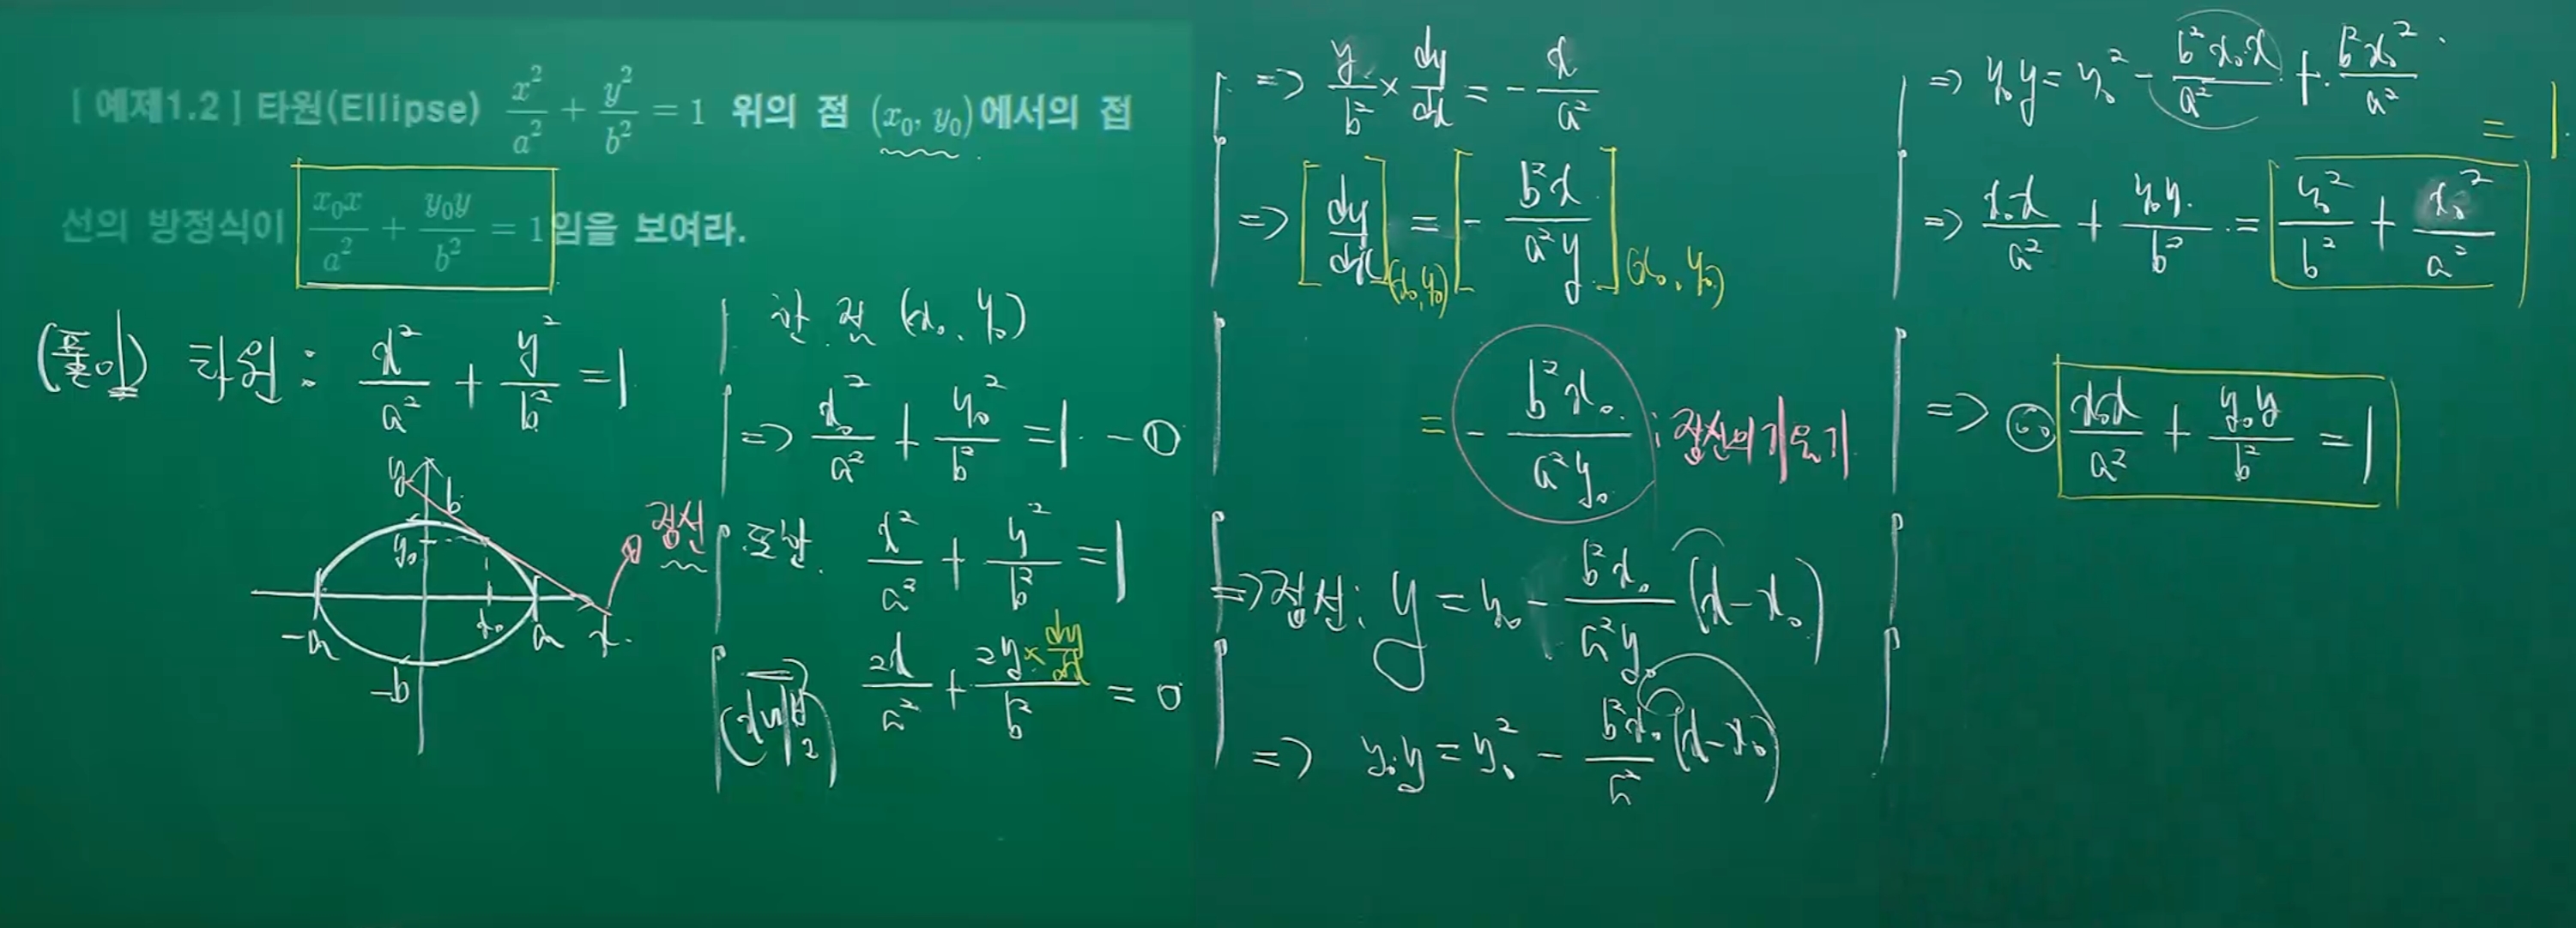 [ 예제1.2 ] 타원(Ellipse) x²/a² + y²/b² = 1 위의 점 (x₀, y₀)에서의 접
선의 방정식이 x₀x/a² + y₀y/b² = 1 임을 보여라.
(풀이) 타원 : x²/a² + y²/b² = 1
y
b
y₀
-a
x₀
a
x
-b
접선
한 점 (x₀, y₀)
=> x₀²/a² + y₀²/b² = 1 - ①
또한 x²/a² + y²/b² = 1
2x/a² + 2y/b² × dy/dx = 0
=> y/b² × dy/dx = - x/a²
=> [dy/dx](x₀, y₀) = [- b²x/a²y](x₀, y₀)
= - b²x₀/a²y₀ : 접선의 기울기
=> 접선 : y = y₀ - b²x₀/a²y₀ (x - x₀)
=> y₀y = y₀² - b²x₀/a² (x - x₀)
=> y₀y = y₀² - b²x₀x/a² + b²x₀²/a²
= 1
=> x₀x/a² + y₀y/b² = y₀²/b² + x₀²/a²
=> ∴ x₀x/a² + y₀y/b² = 1